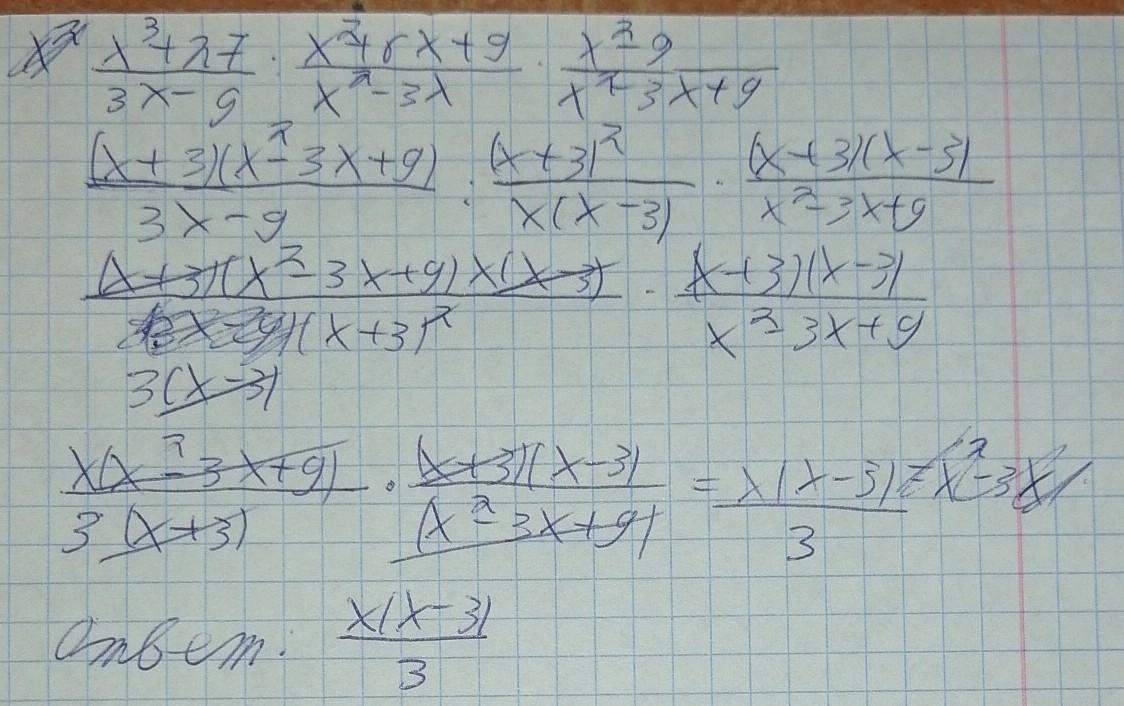 x³+27/3x-9 : x²+6x+9/x²-3x · x²-9/x²-3x+9
(x+3)(x²-3x+9)/3x-9 : (x+3)²/x(x-3) · (x+3)(x-3)/x²-3x+9
(x+3)(x²-3x+9)x(x-3)/3(x-3)(x+3)² · (x+3)(x-3)/x²-3x+9
x(x²-3x+9)/3(x+3) · (x+3)(x-3)/(x²-3x+9) = x(x-3)/3
Ответ: x(x-3)/3